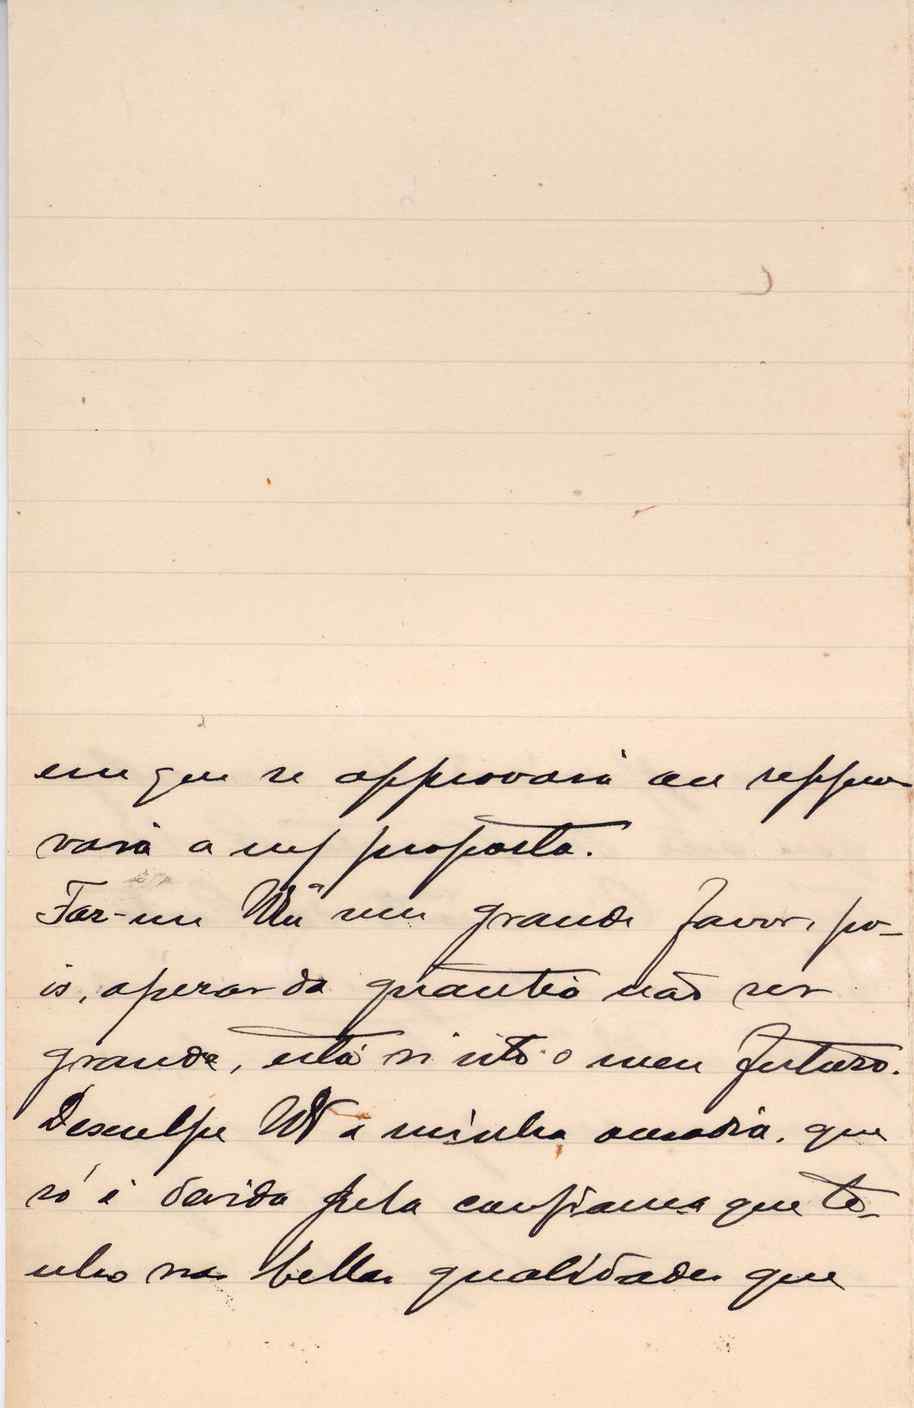 em que se approvará ou reppro
vará a m/ proposta.
Far-me um grande favor, po-
is, apezar da quantia não ser
grande, está n'isto o meu futuro.
Desculpe a minha ousadia, que
só é devida pela confiança que te-
nho nas bellas qualidades que